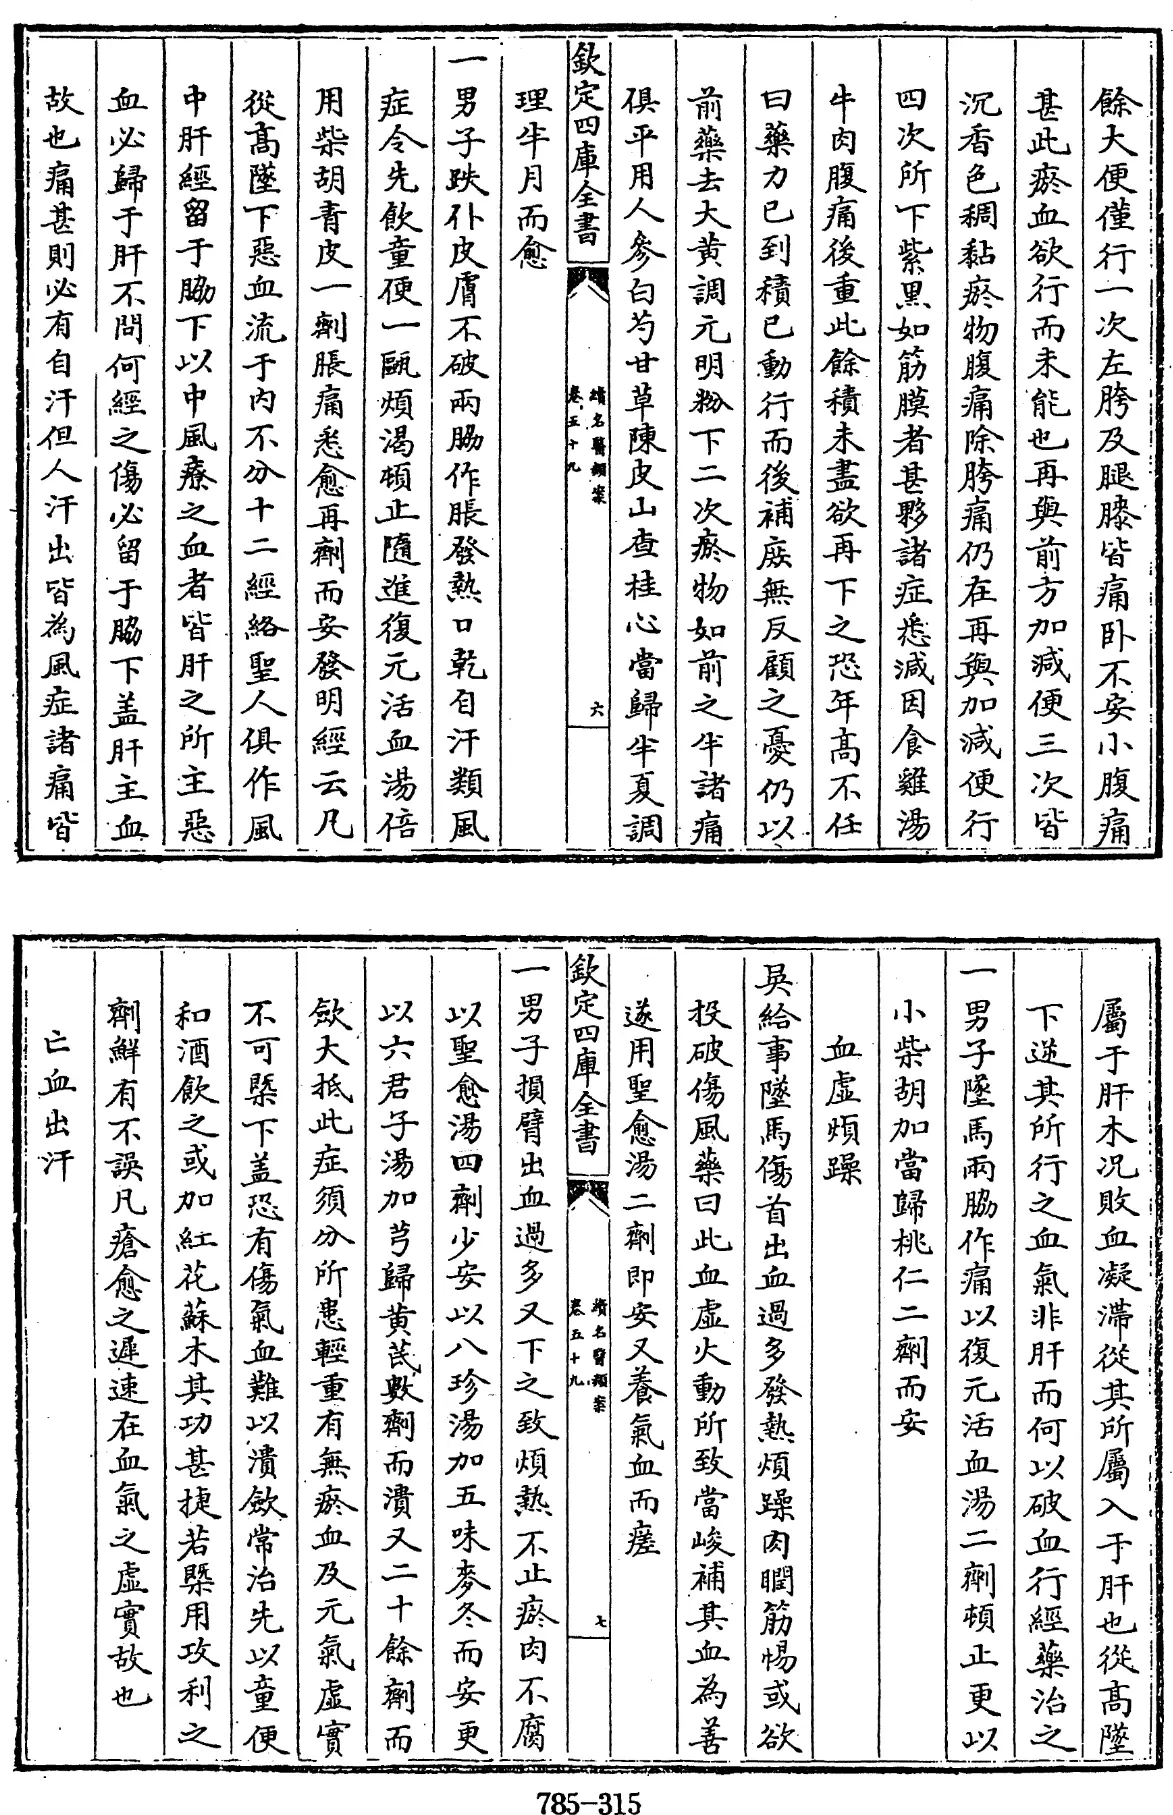 餘大便僅行一次左胯及腿膝皆痛卧不安小腹痛
甚此瘀血欲行而未能也再與前方加減便三次皆
沉香色稠黏瘀物腹痛除胯痛仍在再與加減便行
四次所下紫黑如筋膜者甚夥諸症悉減因食雞湯
牛肉腹痛後重此餘積未盡欲再下之恐年高不任
曰藥力已到積已動行而後補庶無反顧之憂仍以
前藥去大黄調元明粉下二次瘀物如前之半諸痛
俱平用人參白芍甘草陳皮山查桂心當歸半夏調
欽定四庫全書
續名醫類案
卷五十九
六
理半月而愈
一男子跌仆皮膚不破兩脇作脹發熱口乾自汗類風
症令先飲童便一甌煩渴頓止隨進復元活血湯倍
用柴胡青皮一劑脹痛悉愈再劑而安發明經云凡
從髙墜下惡血流于内不分十二經絡聖人俱作風
中肝經留于脇下以中風療之血者皆肝之所主惡
血必歸于肝不問何經之傷必留于脇下盖肝主血
故也痛甚則必有自汗但人汗出皆為風症諸痛皆
屬于肝木况敗血凝滯從其所屬入于肝也從髙墜
下逆其所行之血氣非肝而何以破血行經藥治之
一男子墜馬兩脇作痛以復元活血湯二劑頓止更以
小柴胡加當歸桃仁二劑而安
血虛煩躁
吳給事墜馬傷首出血過多發熱煩躁肉瞤筋惕或欲
投破傷風藥曰此血虛火動所致當峻補其血為善
遂用聖愈湯二劑即安又養氣血而瘥
欽定四庫全書
續名醫類案
卷五十九
七
一男子損臂出血過多又下之致煩熱不止瘀肉不腐
以聖愈湯四劑少安以八珍湯加五味麥冬而安更
以六君子湯加芎歸黄芪數劑而潰又二十餘劑而
斂大抵此症須分所患輕重有無瘀血及元氣虛實
不可槩下盖恐有傷氣血難以潰斂常治先以童便
和酒飲之或加紅花蘇木其功甚捷若槩用攻利之
劑鮮有不誤凡瘡愈之遲速在血氣之虛實故也
亡血出汗
785-315